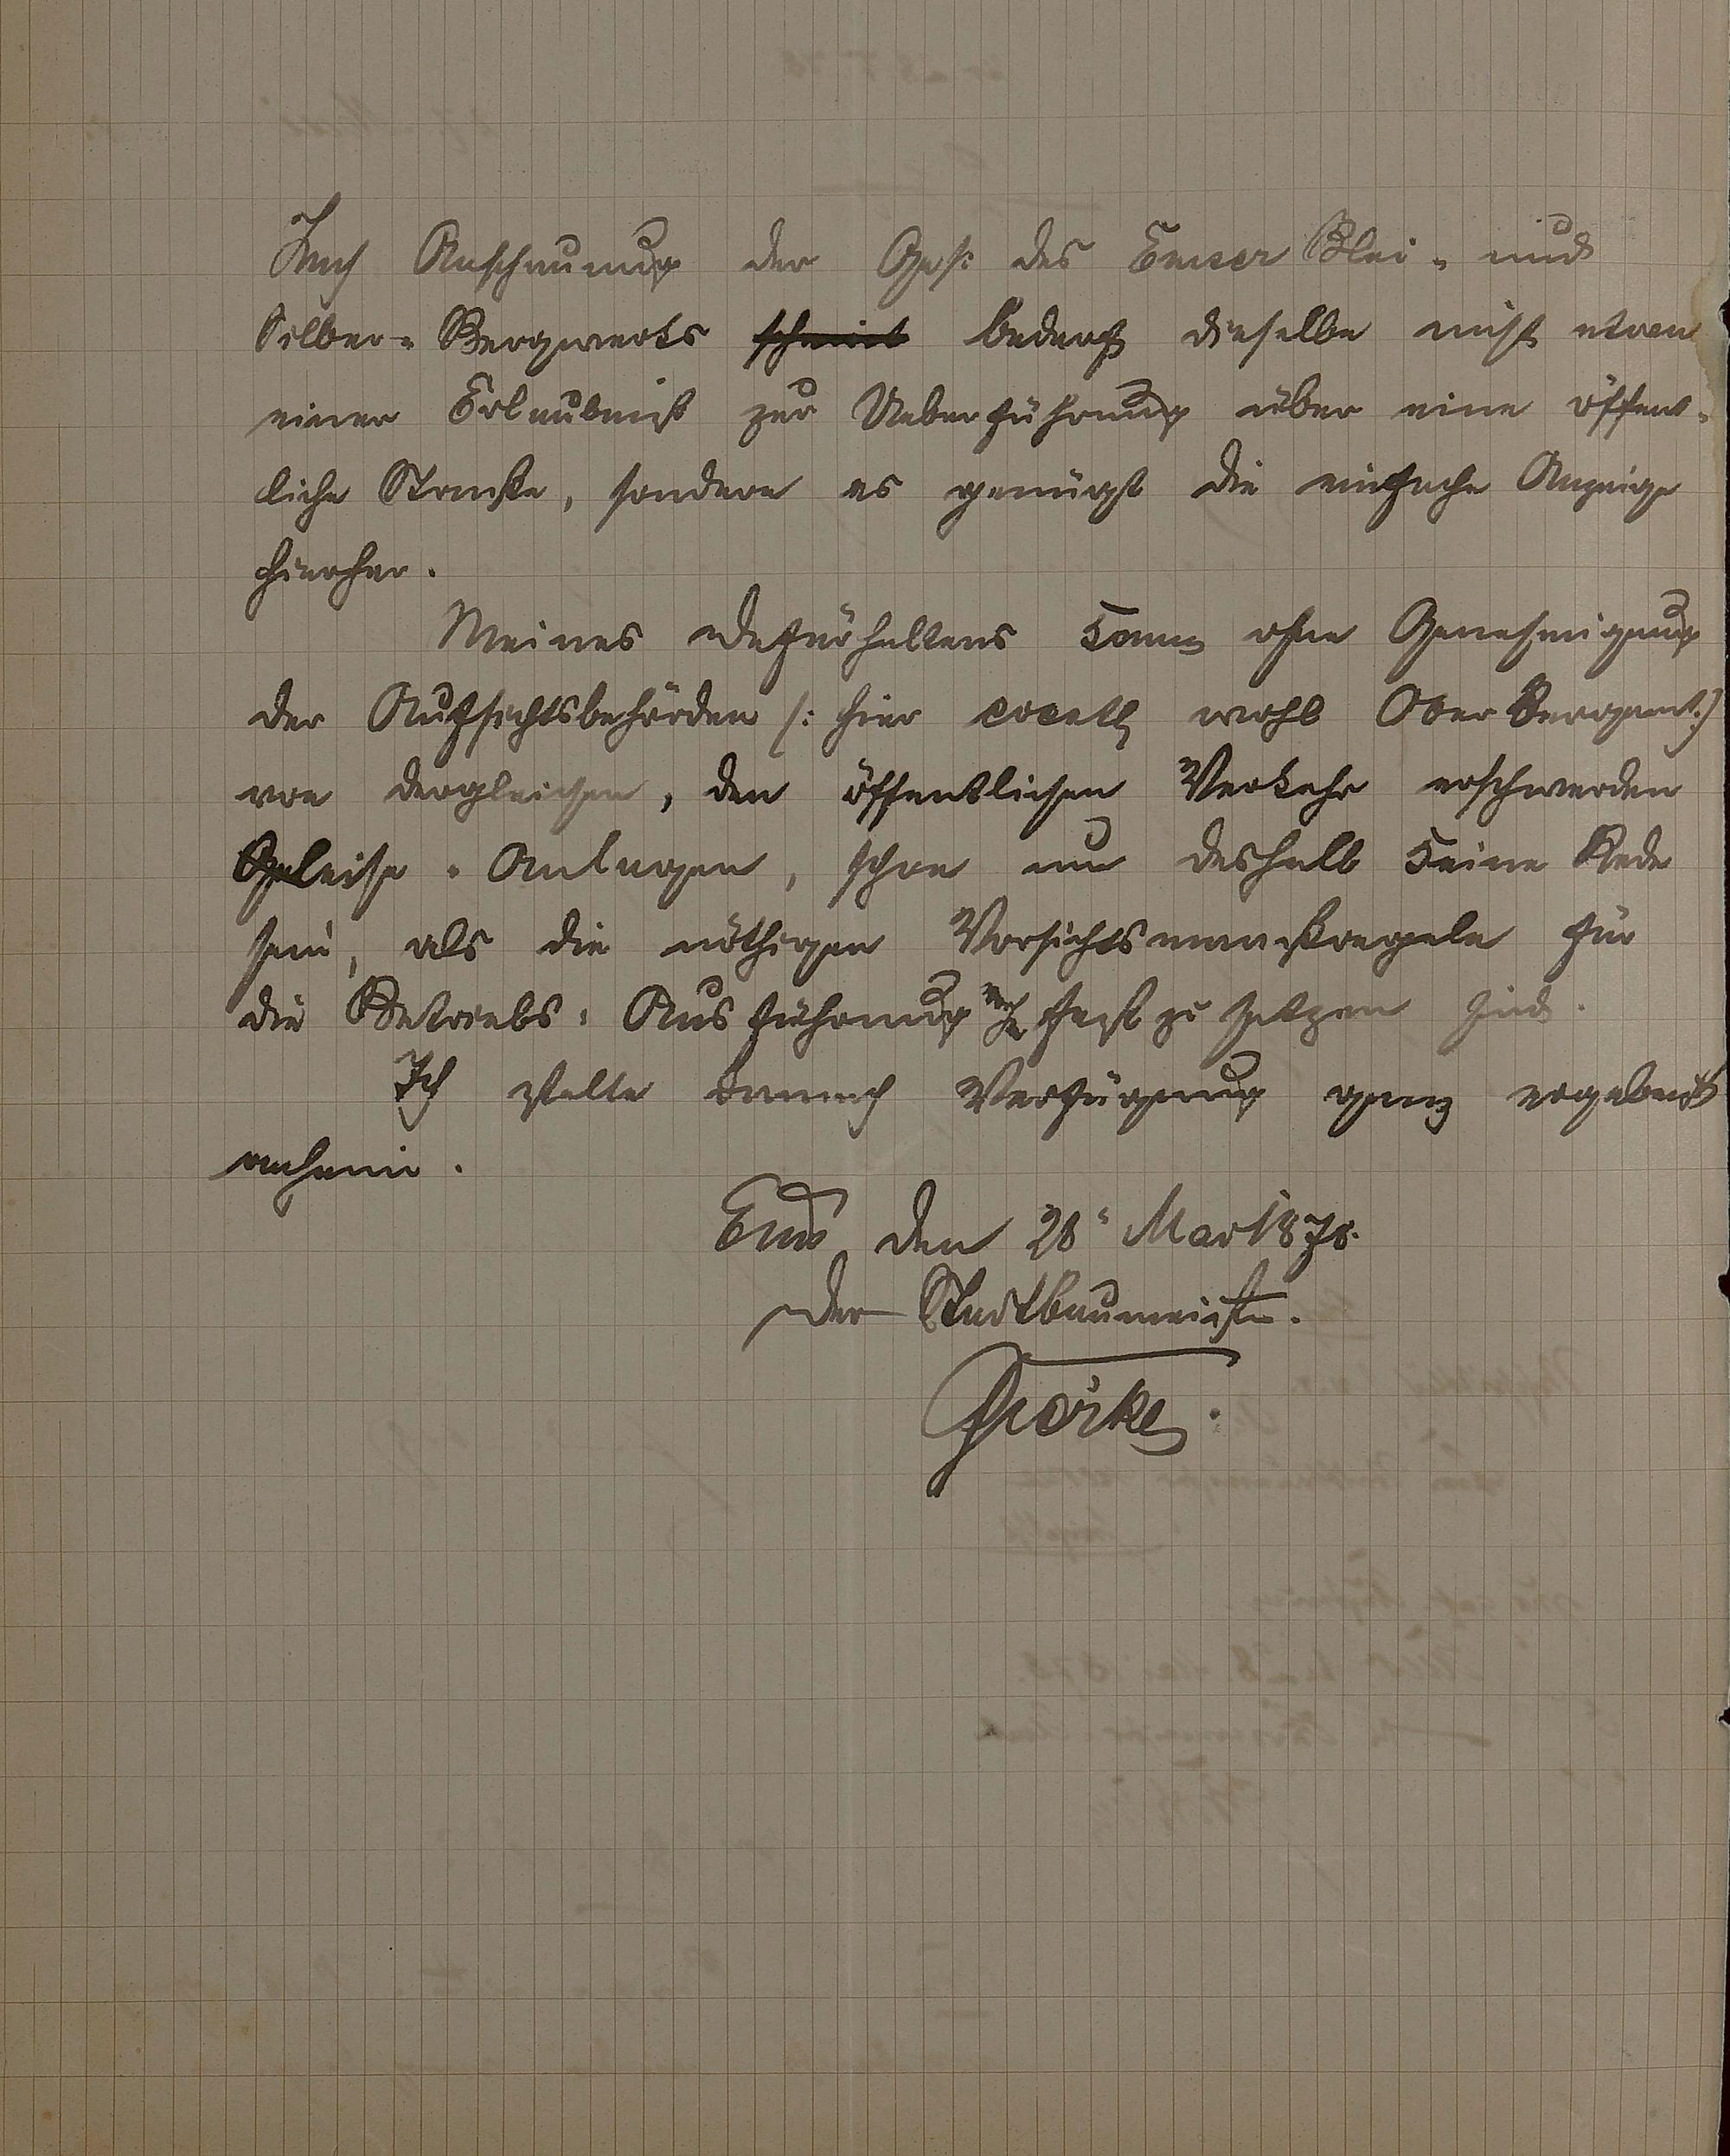 Nach Anschauung der Ges: des Emser Blei- und
Silber-Bergwerks scheint bedarf dieselbe nicht etwa
einer Erlaubniß zur Ueberführung über eine öffent-
liche Straße, sondern es genügt die einfache Anzeige
hierher.
Meines Dafürhaltens kann ohne Genehmigung
der Aufsichtsbehörden /: hier wohl Ober Bergamt:/
von dergleichen, den öffentlichen Verkehr erschwerden
Geleise-Anlagen, schon um deshalb keine Rede
sein, als die nöthigen Vorsichtsmaaßregeln für
die Betriebs-Ausführung noch fest zu setzen sind.
Ich stelle danach Verfügung ganz ergebenst
anheim.
Ems, den 28t Mai 1878.
Der Stadtbaumeister.